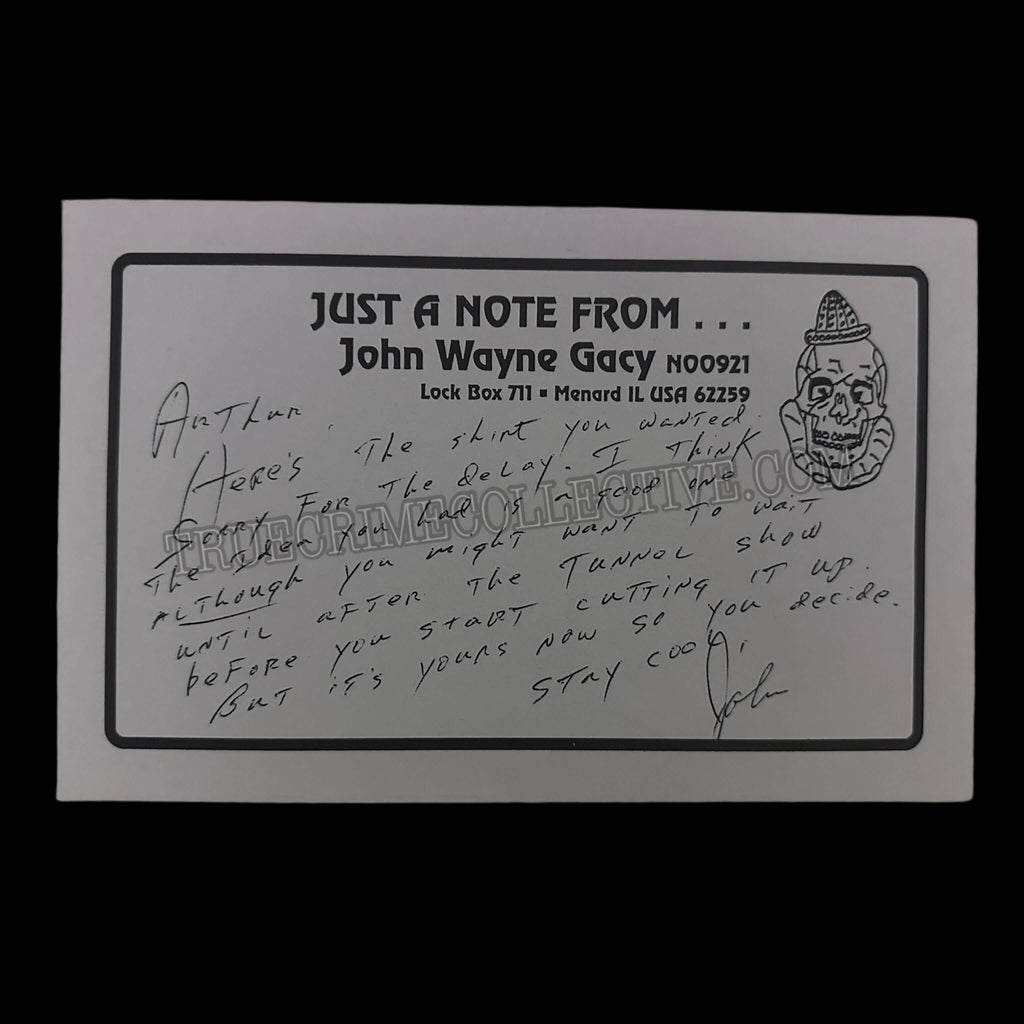 JUST A NOTE FROM . . .
John Wayne Gacy N00921
Lock Box 711 ▪ Menard IL USA 62259
Arthur,
Here's the shirt you wanted.
Sorry for the delay. I think
the idea you had is a good one
although you might want to wait
until after the Tunnel show
before you start cutting it up.
But it's yours now so you decide.
Stay cool,
John
TRUECRIMECOLLECTIVE.COM